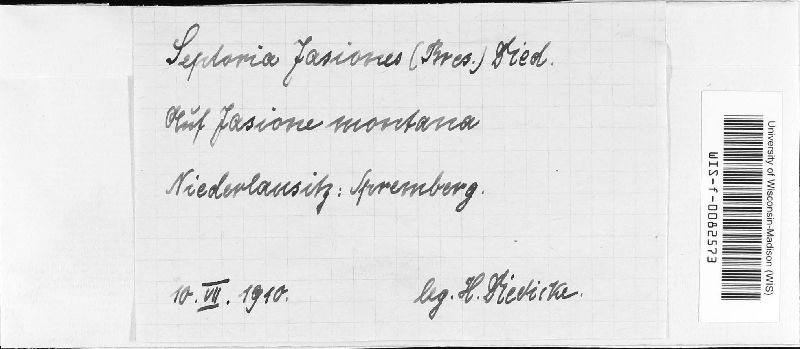 Septoria Jasiones (Bres.) Died.
Auf Jasione montana
Niederlausitz: Spremberg.
10. VII. 1910.
leg. H. Diedicke.
University of Wisconsin-Madison (WIS)
WIS-f-0082573